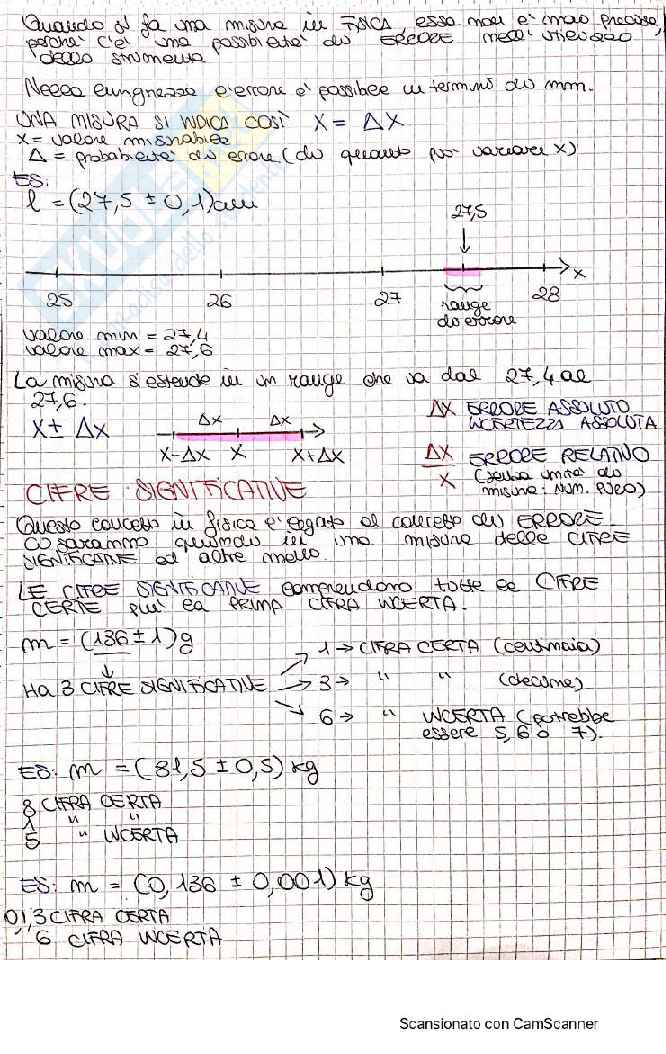 Quando si fa una misura in FISICA, essa non e' mai precisa,
perché c'è una possibilità di ERRORE nell'utilizzo
dello strumento
Nella lunghezza l'errore è possibile in termini di mm.
UNA MISURA SI INDICA COSÌ X = ΔX
X = valore misurabile
Δ = probabilità di errore (di quanto può variare X)
ES:
l = (27,5 ± 0,1) cm
27,5
25 26 27 28 x
range
di errore
valore min = 27,4
valore max = 27,6
La misura si estende in un range che va dal 27,4 al
27,6.
X ± ΔX
Δx Δx
X-ΔX X X+ΔX
ΔX ERRORE ASSOLUTO
INCERTEZZA ASSOLUTA
ΔX/X ERRORE RELATIVO
(senza unità di
misura: NUM. PURO)
CIFRE SIGNIFICATIVE
Questo concetto in fisica e' legato al concetto di ERRORE
Ci saranno quindi in una misura delle CIFRE
SIGNIFICATIVE ed altre meno.
LE CIFRE SIGNIFICATIVE comprendono tutte le CIFRE
CERTE più la PRIMA CIFRA INCERTA.
m = (136 ± 1) g
Ha 3 CIFRE SIGNIFICATIVE
1 → CIFRA CERTA (centinaia)
3 → " " (decine)
6 → " INCERTA (potrebbe
essere 5, 6 o 7).
ES: m = (81,5 ± 0,5) kg
8 CIFRA CERTA
1 " "
5 " INCERTA
ES: m = (0,136 ± 0,001) kg
0,1,3 CIFRA CERTA
6 CIFRA INCERTA
Scansionato con CamScanner